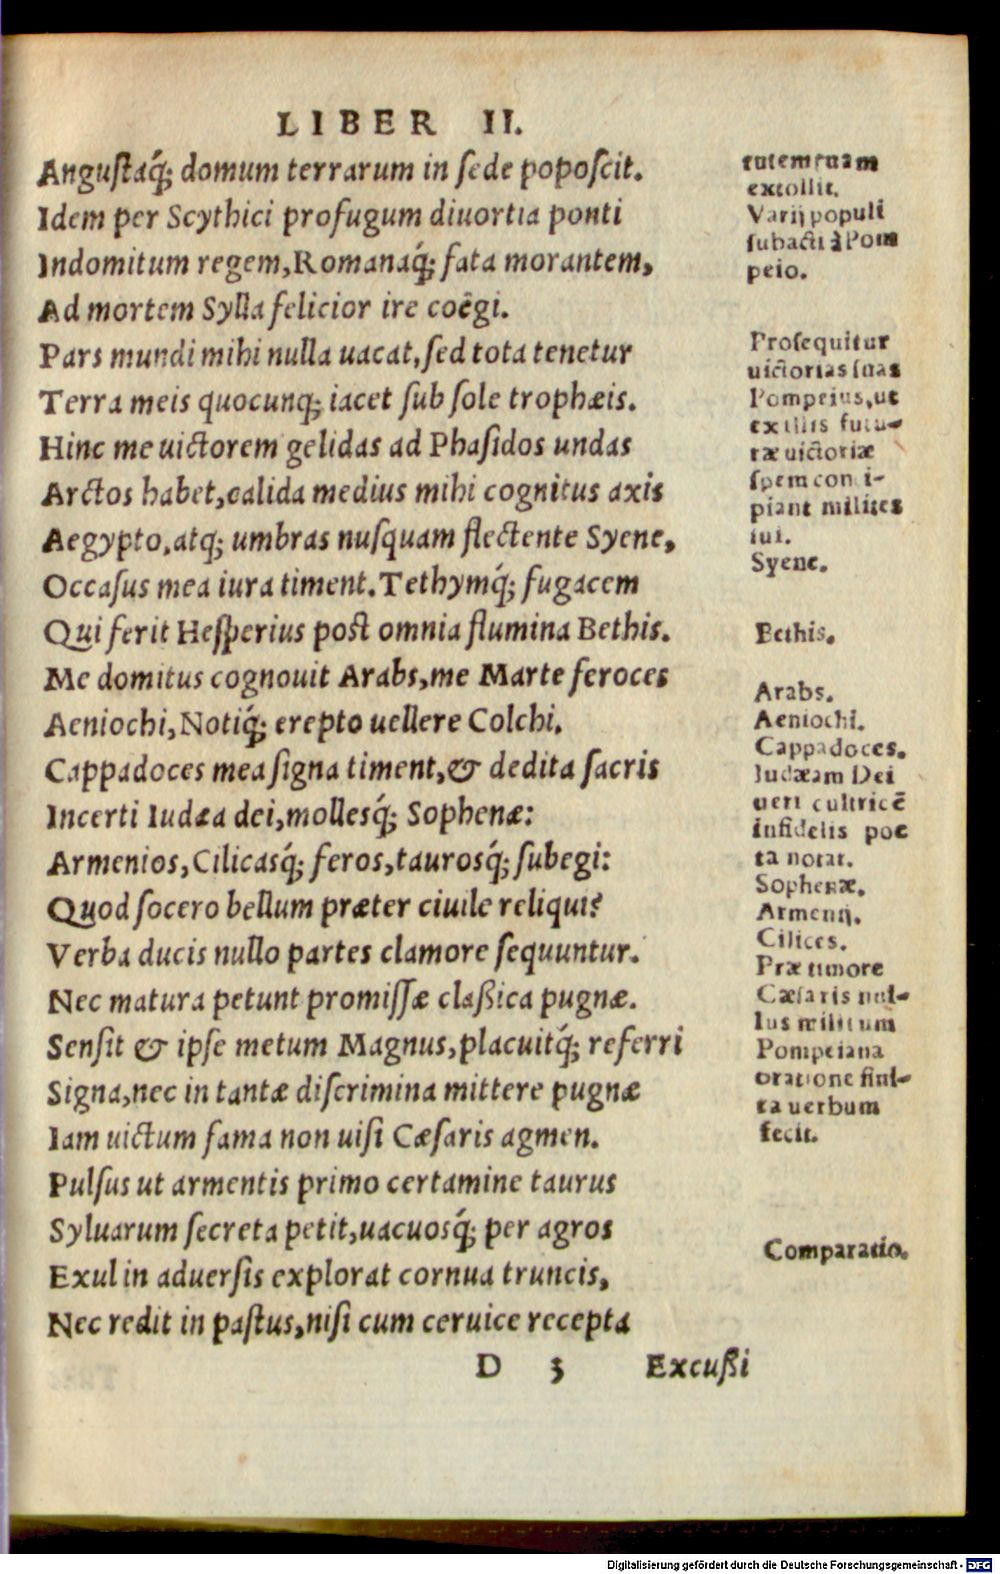 LIBER II.
Angustáq́; domum terrarum in sede poposcit.
Idem per Scythici profugum diuortia ponti
Indomitum regem, Romanaq́; fata morantem,
Ad mortem Sylla felicior ire coëgi.
Pars mundi mihi nulla uacat, sed tota tenetur
Terra meis quocunq; iacet sub sole trophæis.
Hinc me uictorem gelidas ad Phasidos undas
Arctos habet, calida medius mihi cognitus axis
Aegypto, atq; umbras nusquam flectente Syene,
Occasus mea iura timent. Tethymq́; fugacem
Qui ferit Hesperius post omnia flumina Bethis.
Me domitus cognouit Arabs, me Marte feroces
Aeniochi, Notiq́; erepto uellere Colchi.
Cappadoces mea signa timent, & dedita sacris
Incerti Iudæa dei, mollesq́; Sophenæ:
Armenios, Cilicasq́; feros, taurosq́; subegi:
Quod socero bellum præter ciuile reliqui?
Verba ducis nullo partes clamore sequuntur.
Nec matura petunt promissæ claßica pugnæ.
Sensit & ipse metum Magnus, placuitq́; referri
Signa, nec in tantæ discrimina mittere pugnæ
Iam uictum fama non uisi Cæsaris agmen.
Pulsus ut armentis primo certamine taurus
Syluarum secreta petit, uacuosq́; per agros
Exul in aduersis explorat cornua truncis,
Nec redit in pastus, nisi cum ceruice recepta
D 3 Excußi
extollit.
Varij populi
subacti à Pom
peio.
Prosequitur
uictorias suas
Pompeius, ut
ex illis futu-
ræ uictoriæ
spem con i-
piant milites
sui.
Syene.
Bethis.
Arabs.
Aeniochi.
Cappadoces.
Iudæam Dei
ueri cultricē
infidelis poe
ta notat.
Sophenæ.
Armenij.
Cilices.
Præ timore
Cæsaris nul-
lus militum
Pompeiana
oratione fini-
ta uerbum
fecit.
Comparatio.
Digitalisierung gefördert durch die Deutsche Forschungsgemeinschaft - DFG